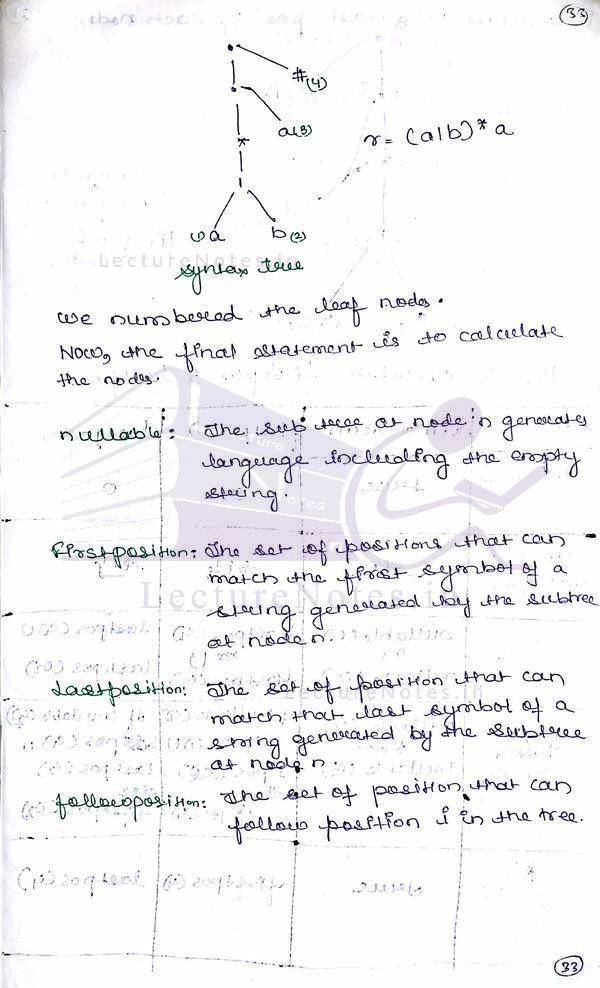 33
#(4)
a(3)
*
r = (a|b)* a
|
(1) a b (2)
LectureNotes.in
syntax tree
we numbered the leaf nodes.
Now, the final statement is to calculate
the nodes.
nullable: The sub tree at node n generates
language including the empty
string.
Firstposition: The set of positions that can
match the first symbol of a
LectureNotes.in
string generated by the subtree
at node n.
Lastposition: The set of position that can
LectureNotes.in
match that last symbol of a
string generated by the subtree
at node n.
followposition: The set of position that can
follow position i in the tree.
33